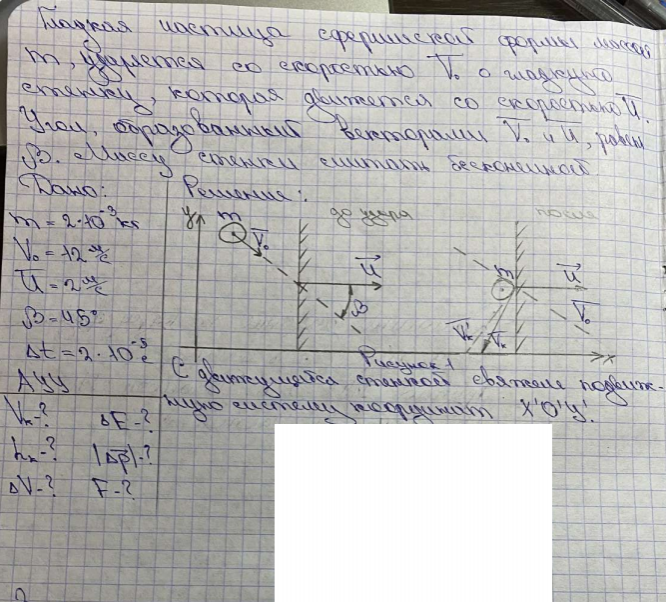 Гладкая частица сферической формы массой
m, ударяется со скоростью V₀ о гладкую
стенку, которая движется со скоростью U.
Угол, образованный векторами V₀ и U, равен
β. Массу стенки считать бесконечной.
Дано:
m = 2·10⁻³ кг
V₀ = 12 м/с
U = 2 м/с
β = 45°
Δt = 2·10⁻⁵ с
АУУ
Vₖ-? ΔE-?
hₖ-? |Δp|-?
ΔV-? F-?
Решение:
до удара
после
y
m
V₀
U
β
m
U
V₀
V'ₖ
Vₖ
x
Рисунок 1
С движущейся стенкой свяжем подвиж-
ную систему координат X'O'Y'.